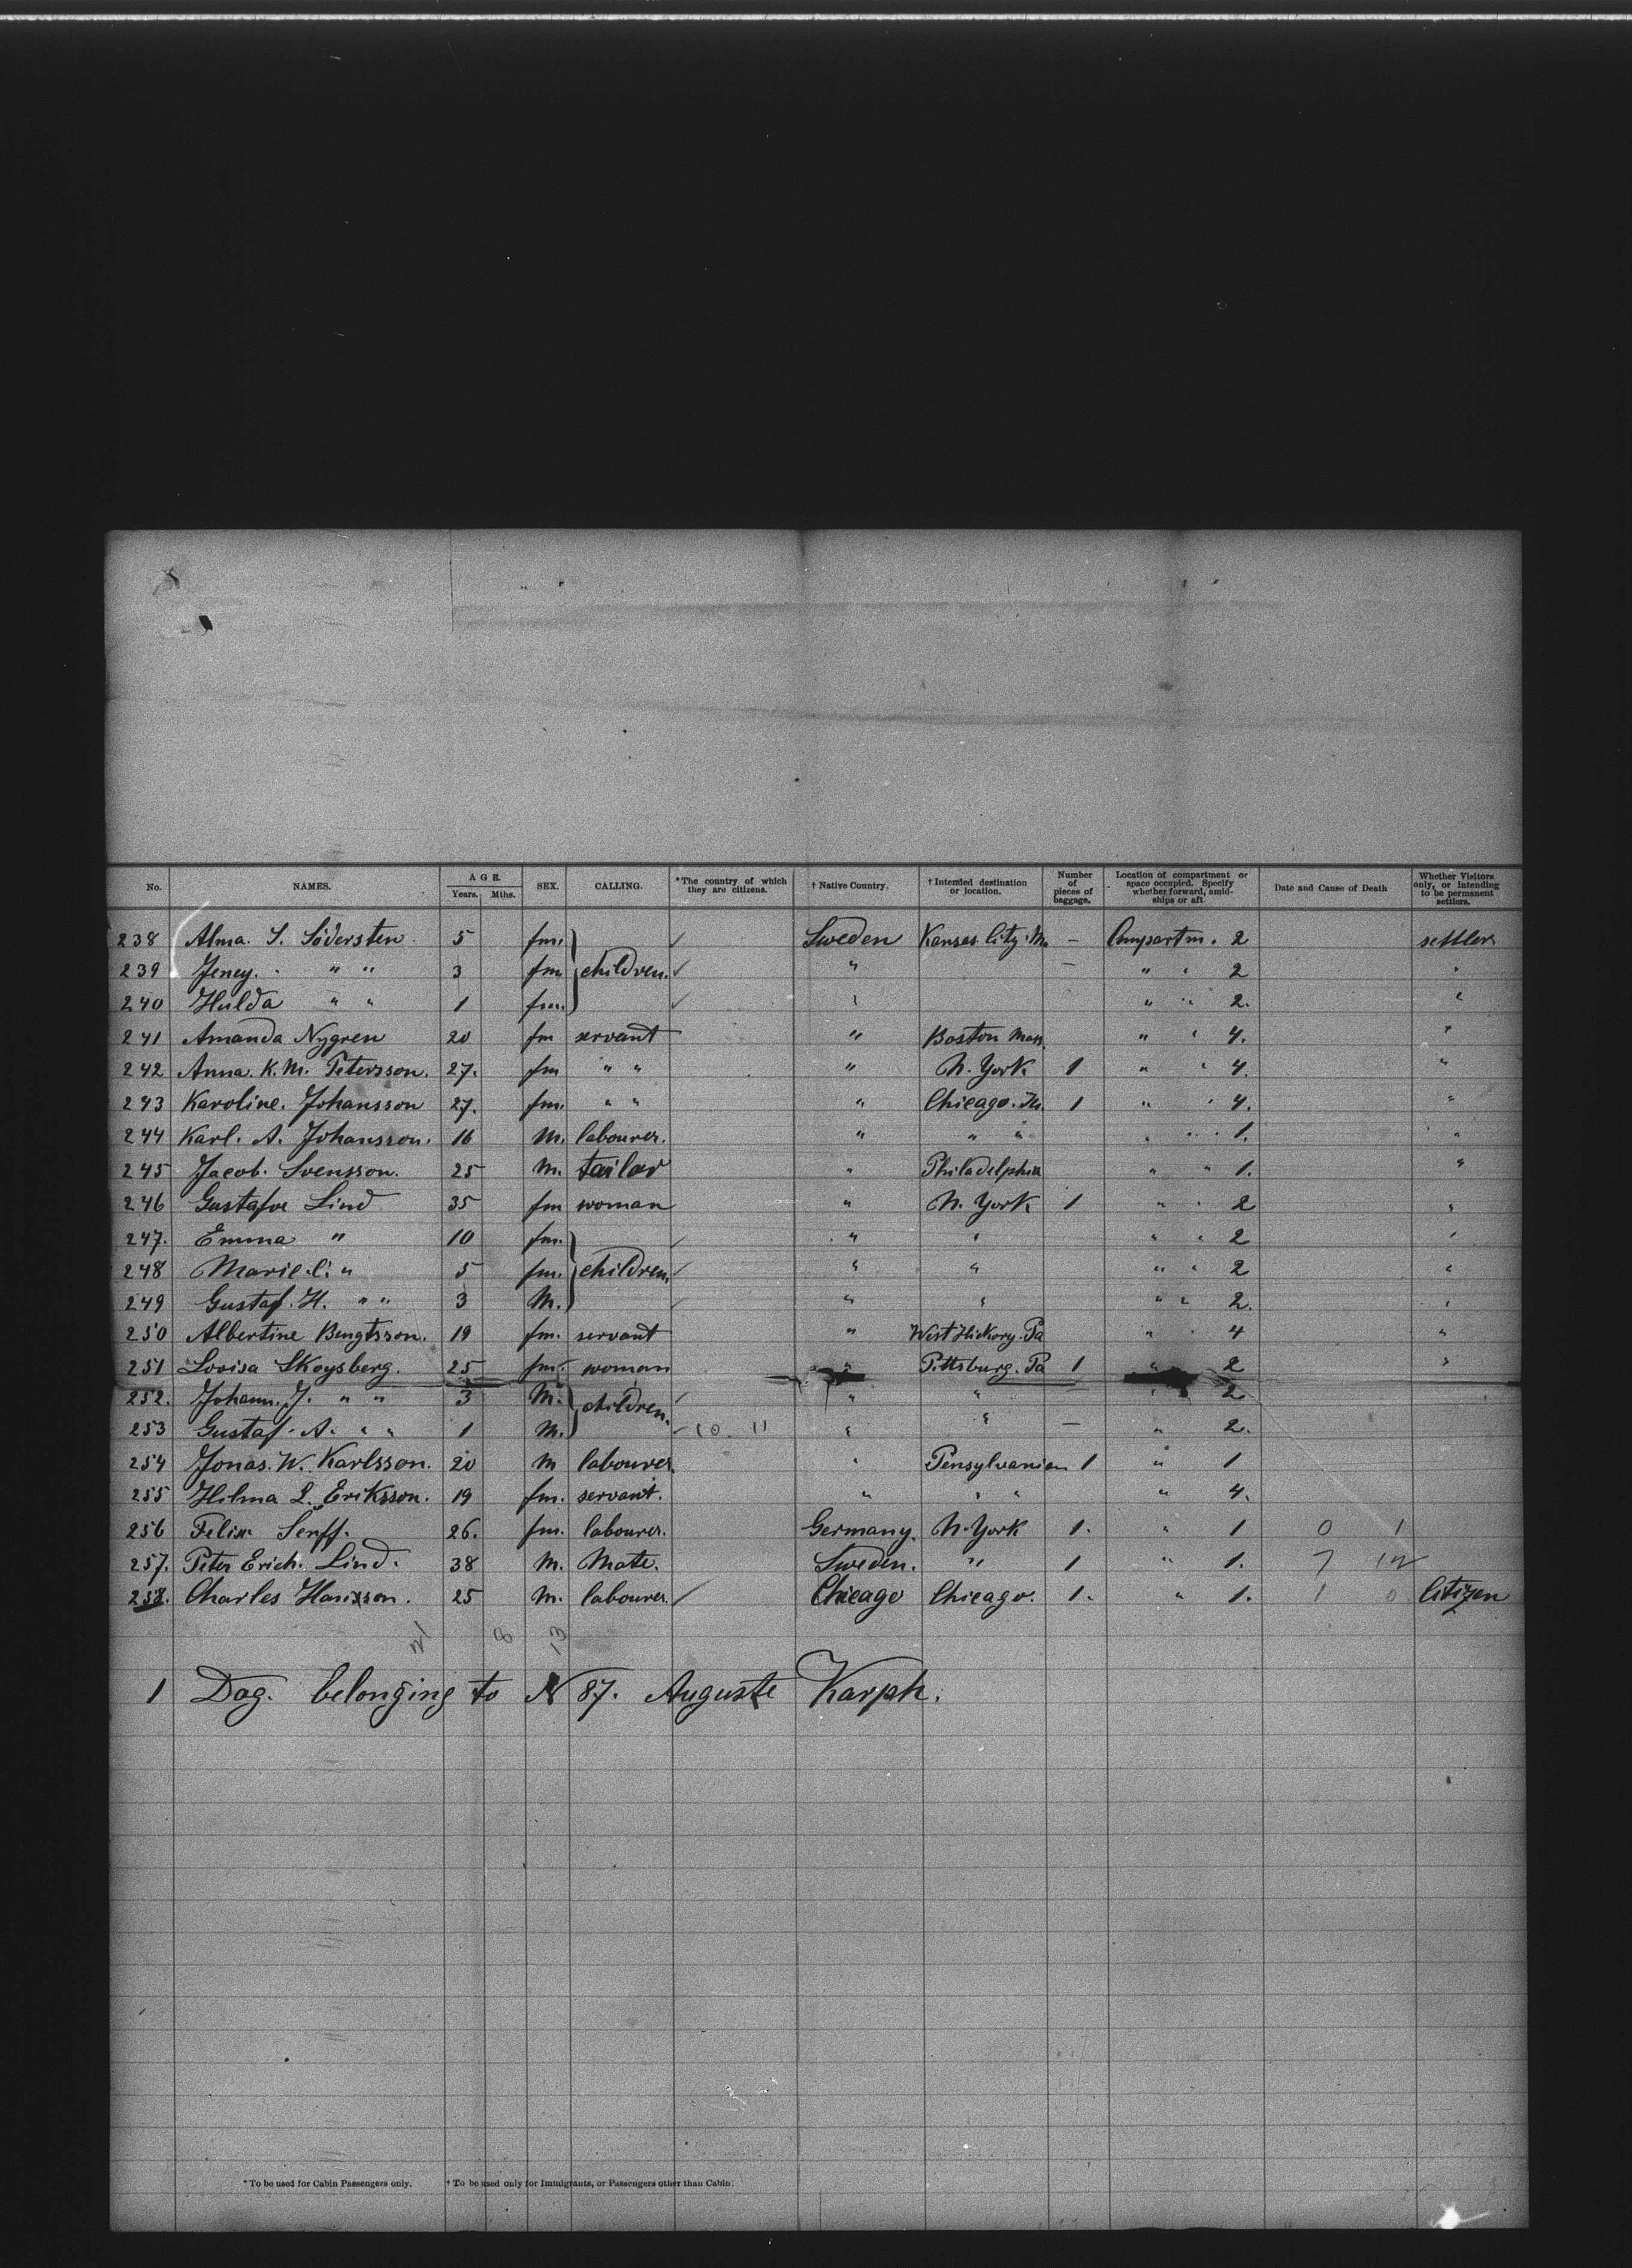 No. NAMES. AGE. Years. Mths. SEX. CALLING. *The country of which they are citizens. † Native Country. † Intended destination or location. Number of pieces of baggage. Location of compartment or space occupied. Specify whether forward, amidships or aft. Date and Cause of Death Whether Visitors only, or intending to be permanent settlers.
238 Alma. S. Södersten 5 fm. Sweden Kansas City. M. — Compartm. 2 settlers
239 Jeney. " " 3 fm children. " — " " 2 "
240 Hulda " " 1 fm. " " " 2. "
241 Amanda Nygren 20 fm servant " Boston Mass. " " 4. "
242 Anna. K. M. Petersson. 27. fm " " " N. York 1 " " 4. "
243 Karoline. Johansson 27. fm. " " " Chicago. Ill. 1 " " 4. "
244 Karl. A. Johansson. 16 M. labourer. " " " " " 1. "
245 Jacob. Svensson. 25 M. tailor " Philadelphia " " 1. "
246 Gustafve Lind 35 fm woman " N. York 1 " " 2 "
247. Emma " 10 fm. " " " " 2 "
248 Marie. C. " 5 fm. children " " " " 2 "
249 Gustaf. H. " " 3 M. " " " " 2. "
250 Albertine Bengtsson. 19 fm. servant " West Hickory. Pa " " 4 "
251 Lovisa Skoysberg. 25 fm. woman " Pittsburg. Pa 1 " 2 "
252. Johann. J. " " 3 M. children. " " " 2
253 Gustaf. A. " " 1 M. 10 11 " " — " 2.
254 Jonas. W. Karlsson. 20 M labourer. " Pensylvanien 1 " 1
255 Hilma L. Eriksson. 19 fm. servant. " " " " 4.
256 Felix Senff. 26. fm. labourer. Germany. N. York 1. " 1 0 1
257. Peter Erich. Lind. 38 M. Mate. Sweden. " 1 " 1. 7 12
258. Charles Hansson. 25 M. labourer. Chicago Chicago. 1. " 1. 1 0 Citizen
21 8 13
1 Dog. belonging to N 87. Auguste Karph.
*To be used for Cabin Passengers only. † To be used only for Immigrants, or Passengers other than Cabin.